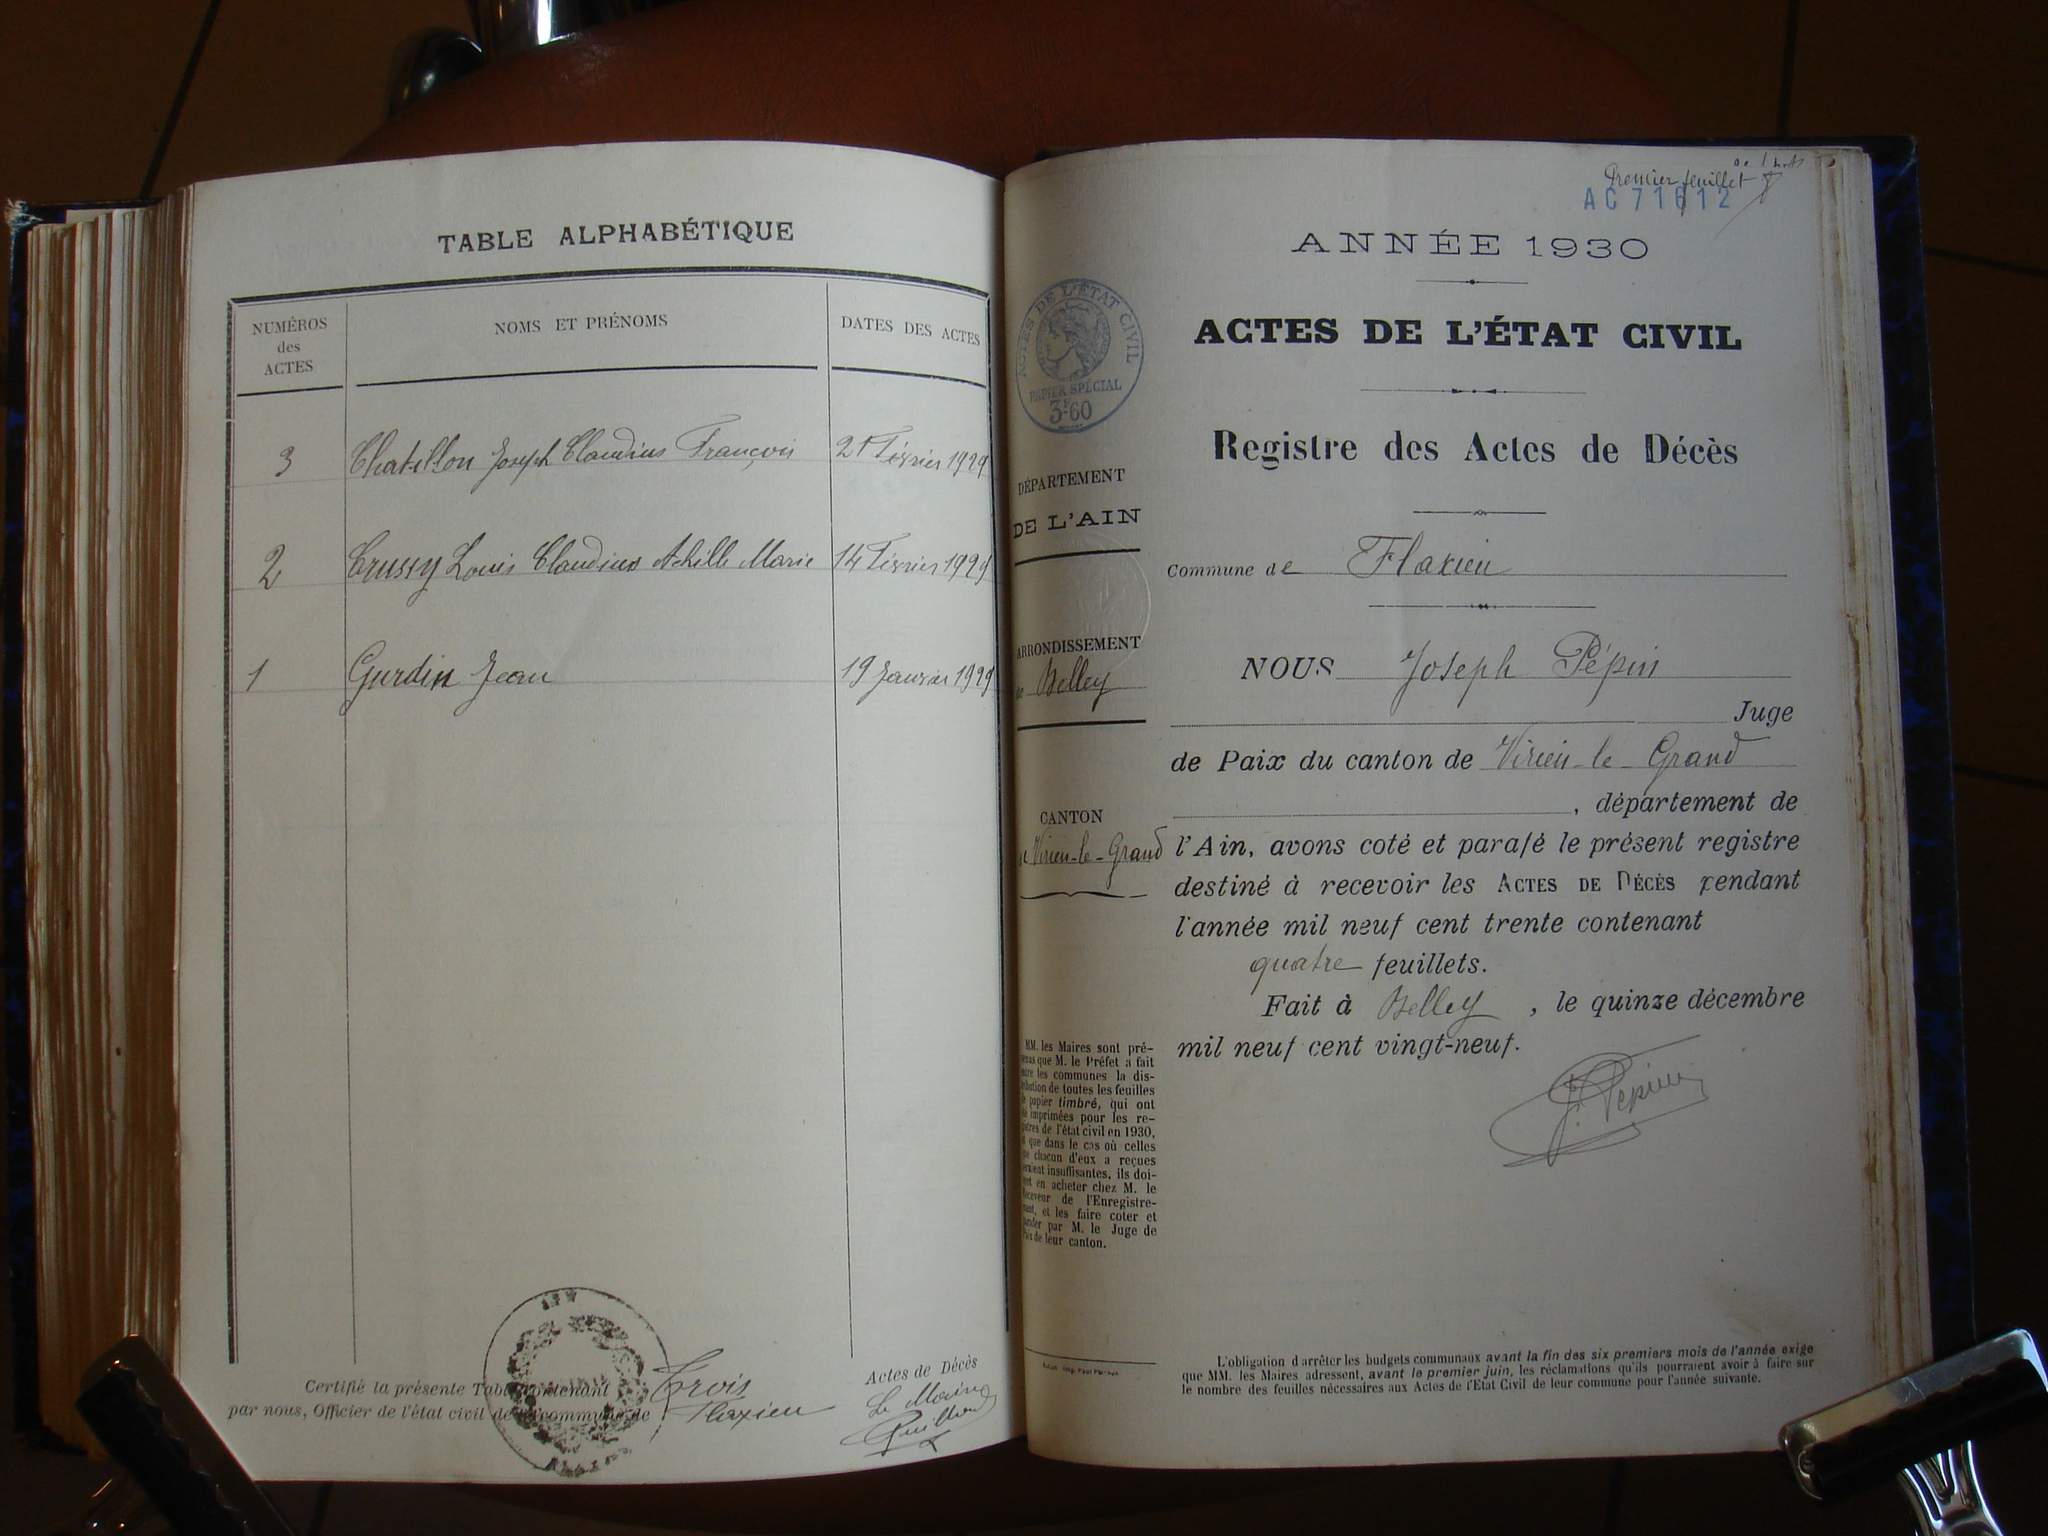 TABLE ALPHABÉTIQUE
NUMÉROS des ACTES
NOMS ET PRÉNOMS
DATES DES ACTES
3 Chatillon Joseph Claudius François 21 Février 1929
2 Crussy Louis Claudius Achille Marie 14 Février 1929
1 Gurdin Jean 19 Janvier 1929
Certifié la présente Table contenant Trois Actes de Décès
par nous, Officier de l'état civil de la commune de Flaxieu
Le Maire
Guilland
Premier feuillet
AC 71612
ANNÉE 1930
ACTES DE L'ÉTAT CIVIL
Registre des Actes de Décès
Commune de Flaxieu
NOUS Joseph Pépin
Juge
de Paix du canton de Virieu-le-Grand
, département de
l'Ain, avons coté et parafé le présent registre
destiné à recevoir les ACTES DE DÉCÈS pendant
l'année mil neuf cent trente contenant
quatre feuillets.
Fait à Belley, le quinze décembre
mil neuf cent vingt-neuf.
J. Pépin
L'obligation d'arrêter les budgets communaux avant la fin des six premiers mois de l'année exige
que MM. les Maires adressent, avant le premier juin, les réclamations qu'ils pourraient avoir à faire sur
le nombre des feuilles nécessaires aux Actes de l'Etat Civil de leur commune pour l'année suivante.
ACTES DE L'ÉTAT CIVIL
PAPIER SPÉCIAL
3F60
DÉPARTEMENT
DE L'AIN
ARRONDISSEMENT
de Belley
CANTON
de Virieu-le-Grand
MM. les Maires sont pré-
venus que M. le Préfet a fait
entre les communes la dis-
tribution de toutes les feuilles
de papier timbré, qui ont
été imprimées pour les re-
gistres de l'état civil en 1930,
et que dans le cas où celles
que chacun d'eux a reçues
seraient insuffisantes, ils doi-
vent en acheter chez M. le
Receveur de l'Enregistre-
ment, et les faire coter et
parafer par M. le Juge de
Paix de leur canton.